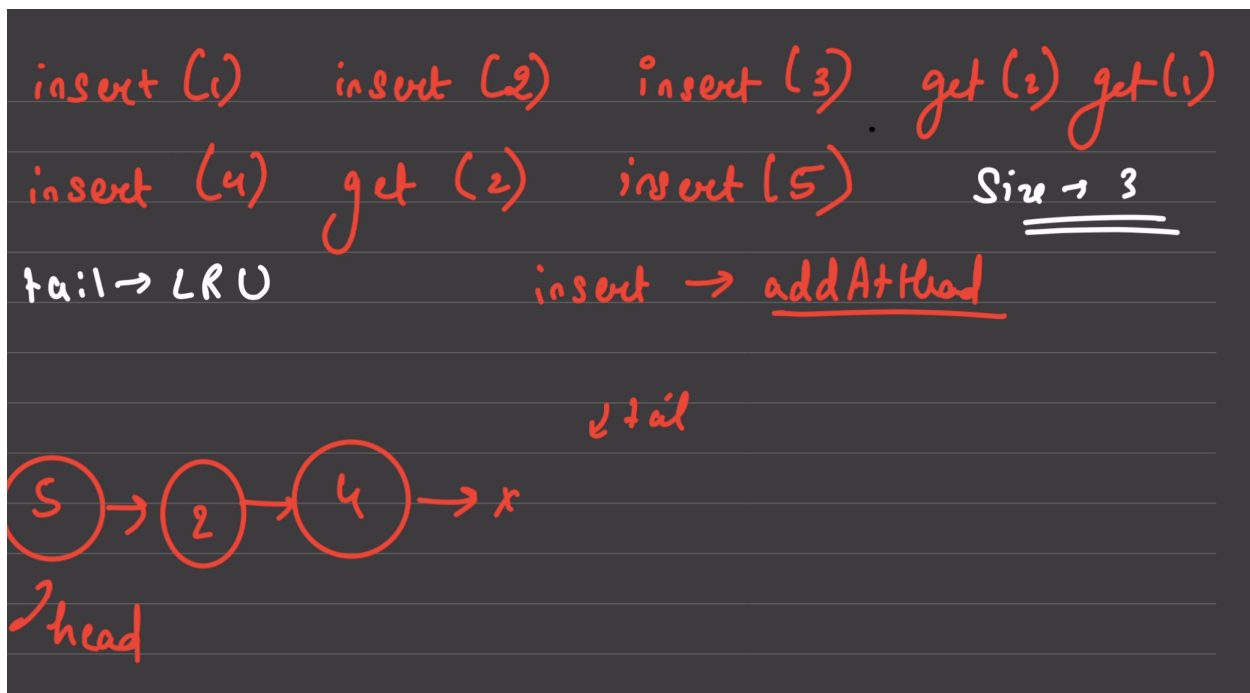 insert (1) insert (2) insert (3) get (2) get (1)
insert (4) get (2) insert (5) Size → 3
tail → LRU insert → addAtHead
tail
5 → 2 → 4 → x
head